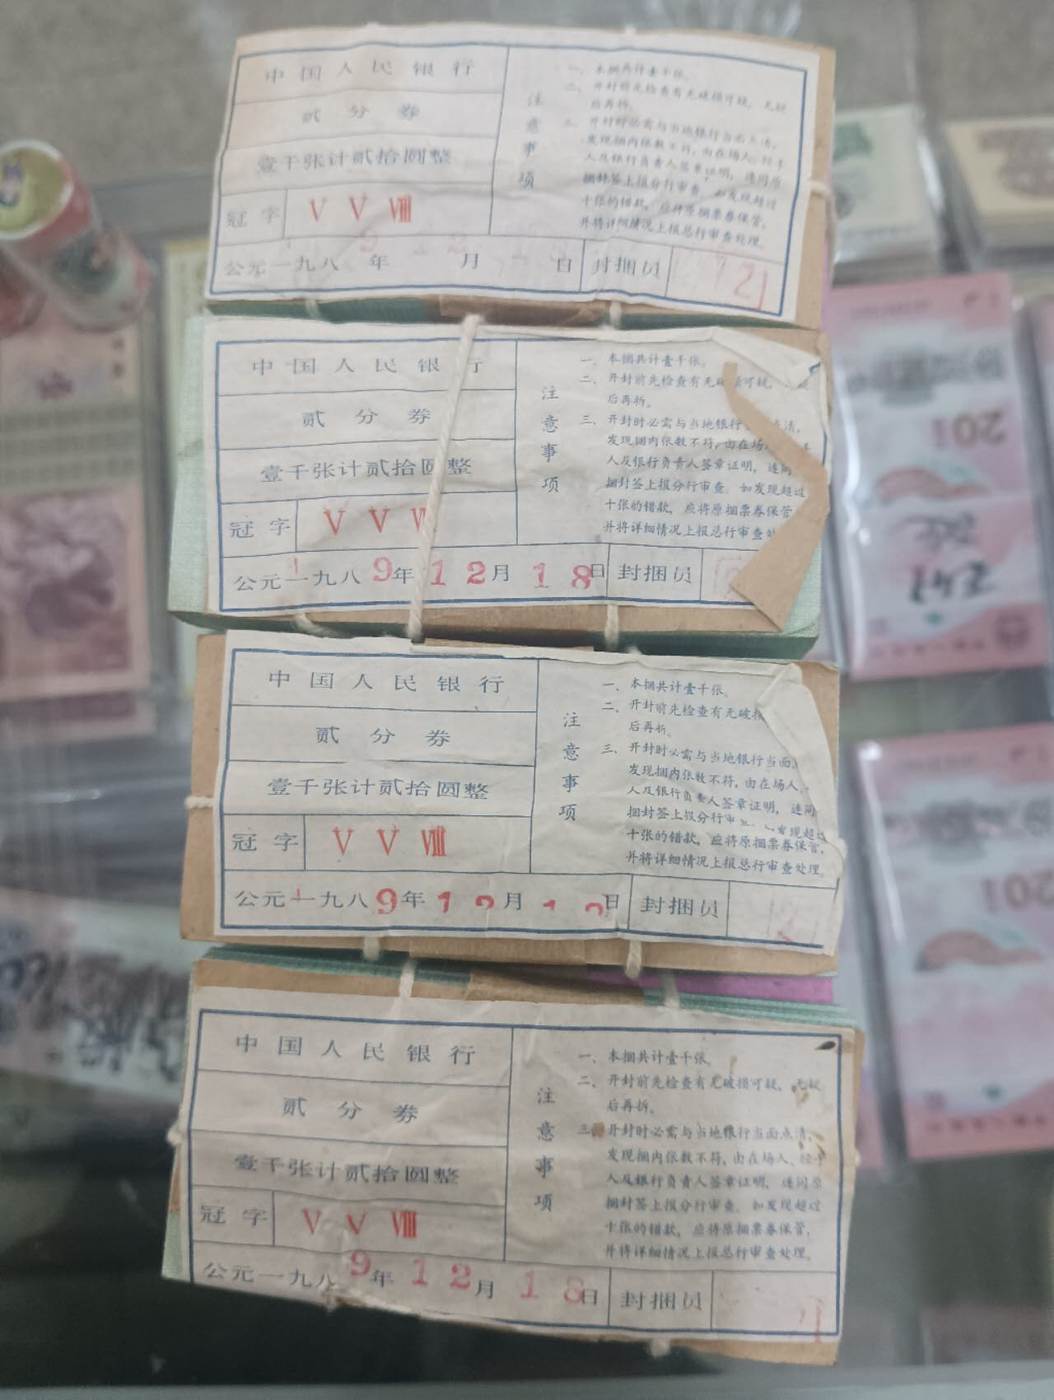 中国人民银行
贰分券
壹千张计贰拾圆整
冠字 V V Ⅷ
公元一九八 年 月 日 封捆员
注意事项
一、本捆共计壹千张。
二、开封前先检查有无破损可疑，无疑
后再拆。
三、开封时必需与当地银行当面点清，
发现捆内张数不符，由在场人、经手
人及银行负责人签章证明，连同原
捆封签上报分行审查，如发现超过
十张的错款，应将原捆票券保管，
并将详细情况上报总行审查处理。
中国人民银行
贰分券
壹千张计贰拾圆整
冠字 V V
公元一九八9年12月18日 封捆员
注意事项
一、本捆共计壹千张。
二、开封前先检查有无 可疑，
后再拆。
三、开封时必需与当地银行 点清，
发现捆内张数不符，由在场
人及银行负责人签章证明，连同
捆封签上报分行审查。如发现超过
十张的错款，应将原捆票券保管
并将详细情况上报总行审查
中国人民银行
贰分券
壹千张计贰拾圆整
冠字 V V Ⅷ
公元一九八9年12月1 日 封捆员
注意事项
一、本捆共计壹千张。
二、开封前先检查有无破损
后再拆。
三、开封时必需与当地银行当面
发现捆内张数不符，由在场人、
人及银行负责人签章证明，连同
捆封签上报分行审 发现超过
十张的错款，应将原捆票券保管，
并将详细情况上报总行审查处理。
中国人民银行
贰分券
壹千张计贰拾圆整
冠字 V V Ⅷ
公元一九八9年12月18日 封捆员
注意事项
一、本捆共计壹千张。
二、开封前先检查有无破损可疑，无疑
后再拆。
三、开封时必需与当地银行当面点清，
发现捆内张数不符，由在场人、经手
人及银行负责人签章证明，连同原
捆封签上报分行审查。如发现超过
十张的错款，应将原捆票券保管，
并将详细情况上报总行审查处理。